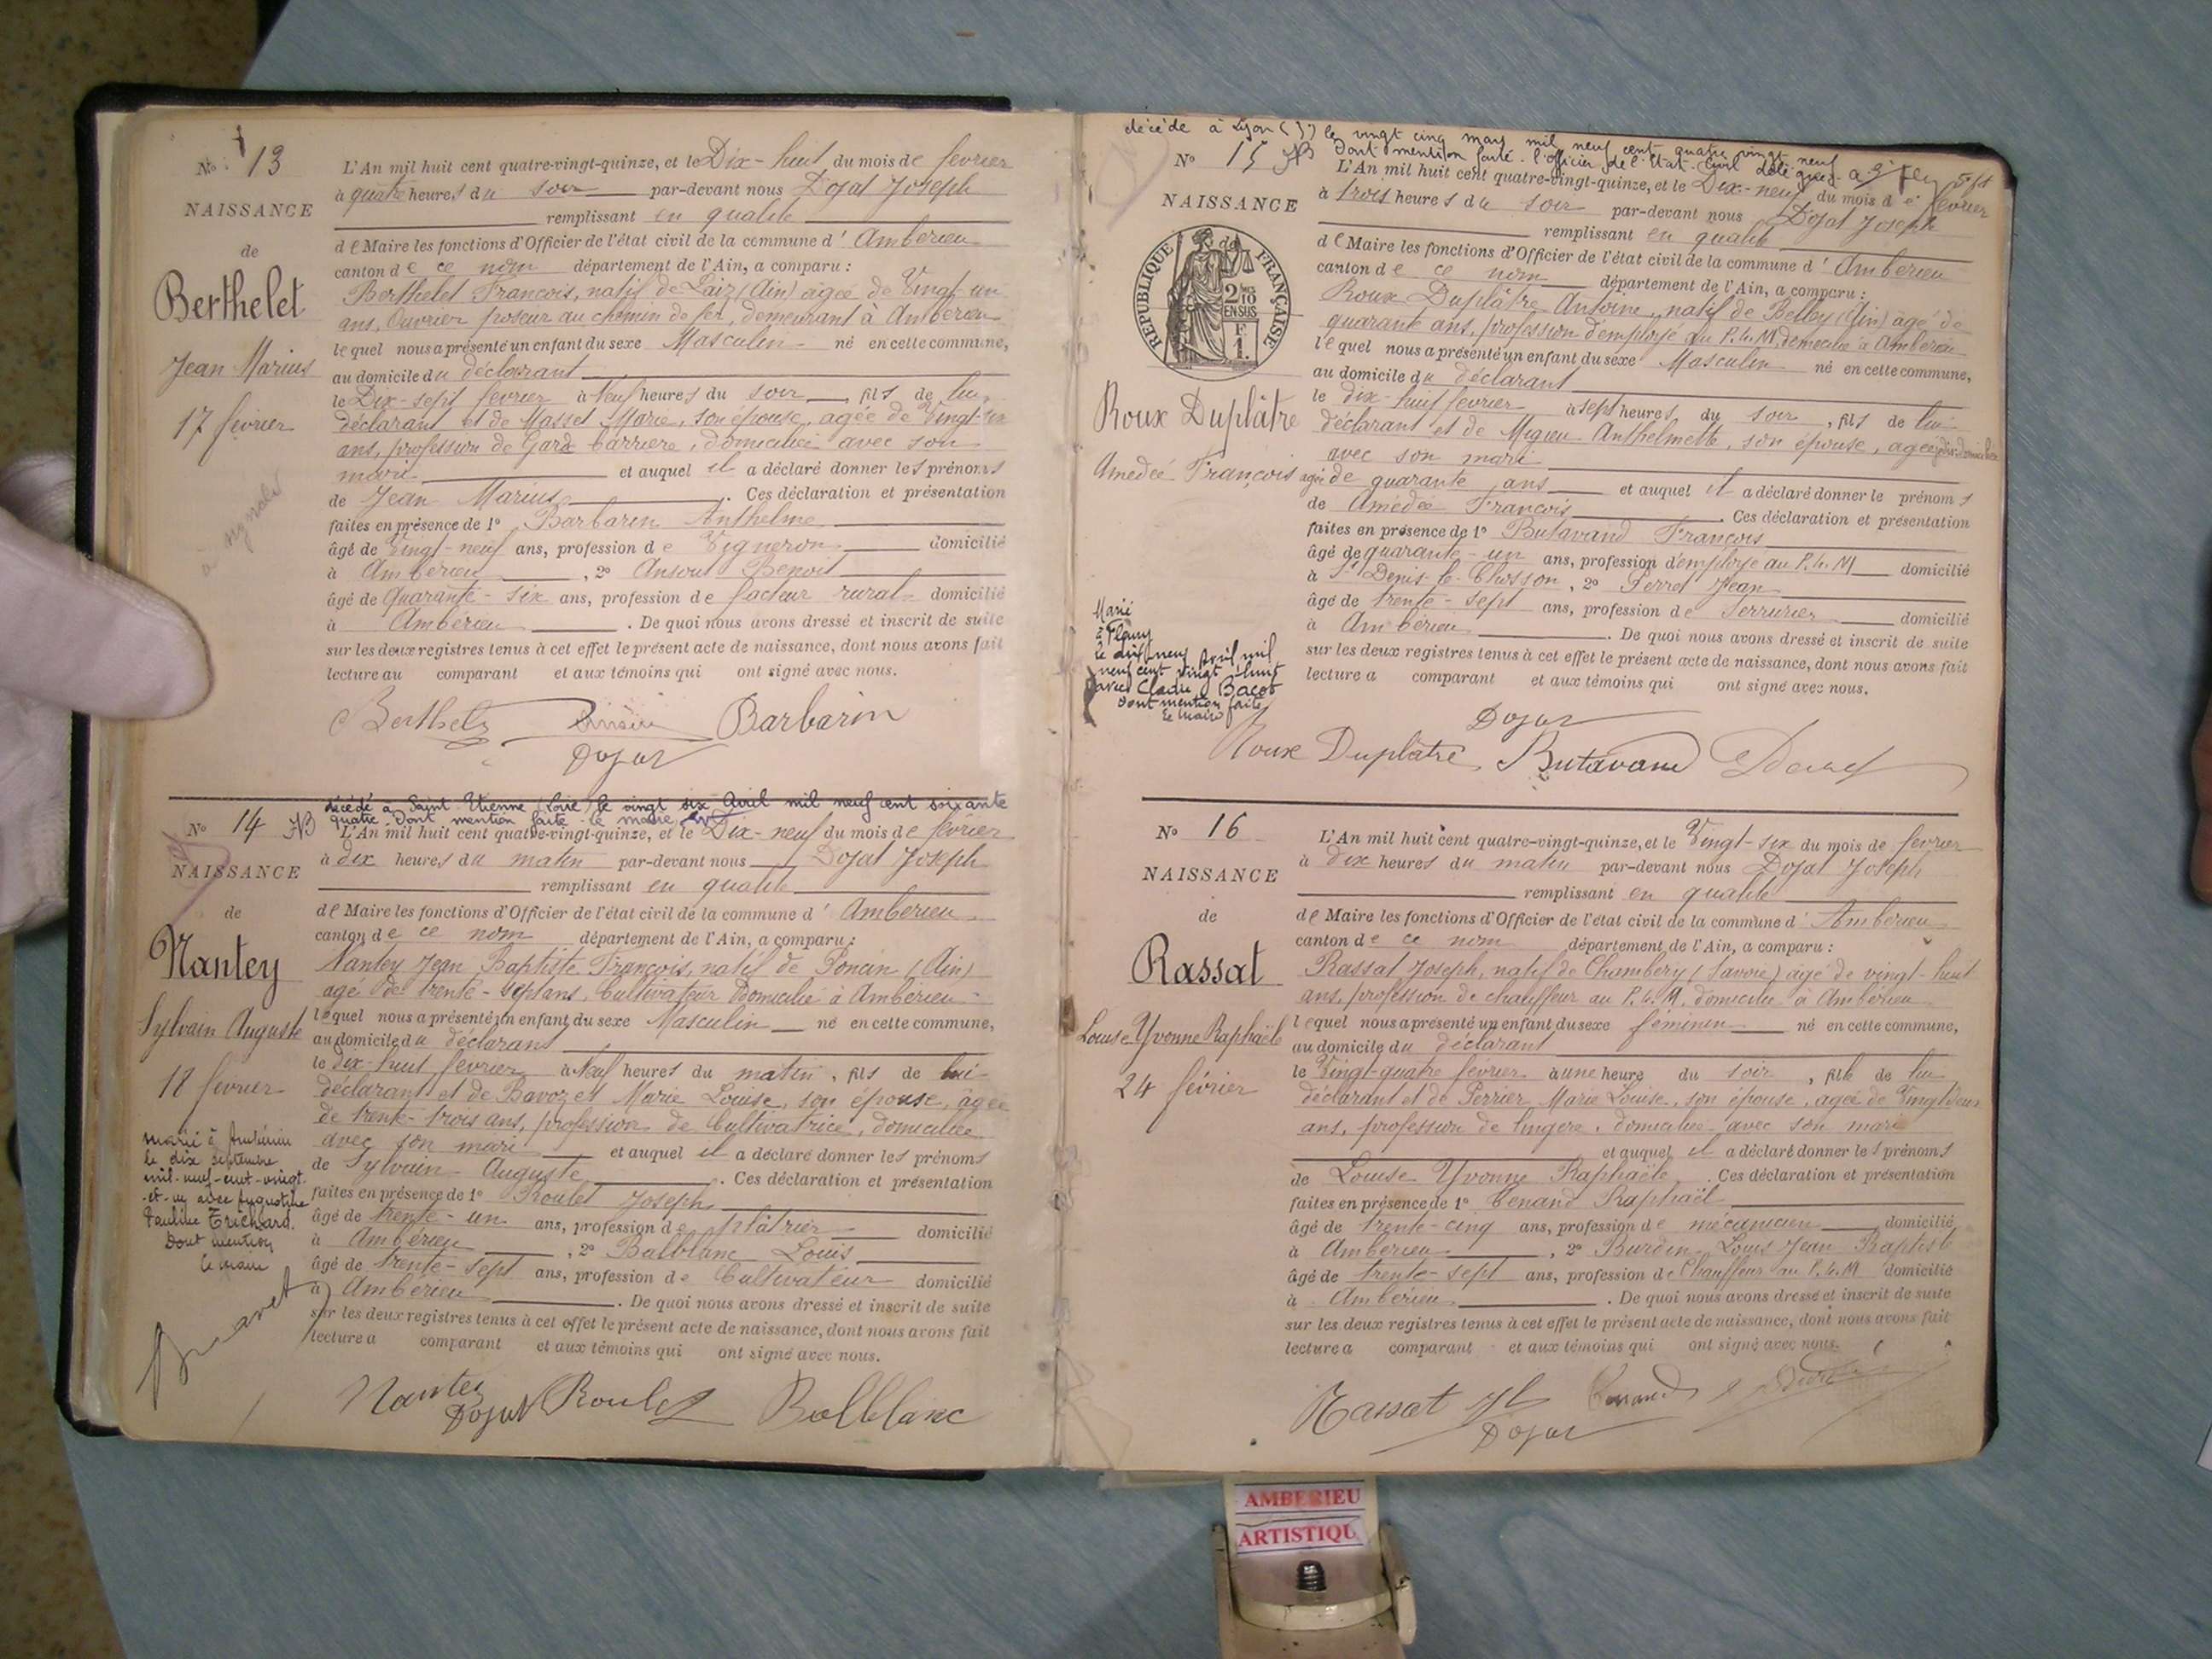 No 13
NAISSANCE
de
Berthelet
Jean Marius
17 février
L'An mil huit cent quatre-vingt-quinze, et le Dix-huit du mois de février
à quatre heures du soir par-devant nous Dojat Joseph
remplissant en qualité
de Maire les fonctions d'Officier de l'état civil de la commune d' Ambérieu
canton de ce nom département de l'Ain, a comparu :
Berthelet François, natif de Laiz (Ain) âgée de Vingt un
ans, Ouvrier poseur au chemin de fer, demeurant à Ambérieu
lequel nous a présenté un enfant du sexe Masculin né en cette commune,
au domicile du déclarant
le Dix-sept février à Neuf heures du soir, fils de lui
déclarant et de Masset Marie, son épouse, agée de Vingt-un
ans, profession de Garde barrière, domiciliée avec son
mari et auquel il a déclaré donner les prénoms
de Jean Marius. Ces déclaration et présentation
faites en présence de 1° Barbarin Anthelme
âgé de Vingt-neuf ans, profession de Vigneron domicilié
à Ambérieu, 2° Benoit
âgé de Quarante-six ans, profession de facteur rural domicilié
à Ambérieu. De quoi nous avons dressé et inscrit de suite
sur les deux registres tenus à cet effet le présent acte de naissance, dont nous avons fait
lecture au comparant et aux témoins qui ont signé avec nous.
Berthelet Barbarin
Dojat
décédé à Saint Etienne (Loire) le vingt six Avril mil neuf cent soixante
quatre. Dont mention faite. le maire
No 14 NB
NAISSANCE
de
Nantey
Sylvain Auguste
18 février
marié à Ambérieu
le dix septembre
mil-neuf-cent-vingt
-et-un avec Augustine
Pauline Trichard.
Dont mention
Le Maire
L'An mil huit cent quatre-vingt-quinze, et le Dix-neuf du mois de février
à dix heures du matin par-devant nous Dojat Joseph
remplissant en qualité
de Maire les fonctions d'Officier de l'état civil de la commune d' Ambérieu
canton de ce nom département de l'Ain, a comparu :
Nantey Jean Baptiste François, natif de Poncin (Ain)
agé de trente-sept ans, Cultivateur Domicilié à Ambérieu
lequel nous a présenté un enfant du sexe Masculin né en cette commune,
au domicile du déclarant
le dix-huit février à Neuf heures du matin, fils de lui
déclarant et de Bavozet Marie Louise, son épouse, agée
de trente-trois ans, profession de Cultivatrice, domiciliée
avec son mari et auquel il a déclaré donner les prénoms
de Sylvain Auguste. Ces déclaration et présentation
faites en présence de 1° Roulet Joseph
âgé de trente-un ans, profession de plâtrier domicilié
à Ambérieu, 2° Balblanc Louis
âgé de trente-sept ans, profession de Cultivateur domicilié
à Ambérieu. De quoi nous avons dressé et inscrit de suite
sur les deux registres tenus à cet effet le présent acte de naissance, dont nous avons fait
lecture a comparant et aux témoins qui ont signé avec nous.
Nantey Dojat Roulet Balblanc
décédé à Lyon le vingt cinq mars mil neuf cent quatre vingt neuf
Dont mention faite. l'officier de l'Etat-Civil délégué.
No 15 NB
NAISSANCE
de
REPUBLIQUE FRANÇAISE
2/10 EN SUS
F 1.
Roux Duplâtre
Amédée François
Marié
à Fleury
le dix neuf Avril mil
neuf cent vingt huit
avec Bacot
Dont mention faite
Le Maire
L'An mil huit cent quatre-vingt-quinze, et le Dix-neuf du mois de février
à trois heures du soir par-devant nous Dojat Joseph
remplissant en qualité
de Maire les fonctions d'Officier de l'état civil de la commune d' Ambérieu
canton de ce nom département de l'Ain, a comparu :
Roux Duplâtre Antoine, natif de Belley (Ain) âgé de
quarante ans, profession d'employé au P.L.M. domicilié à Ambérieu
lequel nous a présenté un enfant du sexe Masculin né en cette commune,
au domicile du déclarant
le dix-huit février à sept heures du soir, fils de lui
déclarant et de Migieu Anthelmette, son épouse, agée
avec son mari
agée de quarante ans et auquel il a déclaré donner le prénoms
de Amédée François. Ces déclaration et présentation
faites en présence de 1° Butavand François
âgé de quarante-un ans, profession d'employé au P.L.M domicilié
à St Denis-le-Chosson, 2° Perret Jean
âgé de trente-sept ans, profession de Serrurier domicilié
à Ambérieu. De quoi nous avons dressé et inscrit de suite
sur les deux registres tenus à cet effet le présent acte de naissance, dont nous avons fait
lecture a comparant et aux témoins qui ont signé avec nous.
Dojat
Roux Duplâtre Butavand
No 16
NAISSANCE
de
Rassat
Louise Yvonne Raphaële
24 février
L'An mil huit cent quatre-vingt-quinze, et le Vingt-six du mois de février
à dix heures du matin par-devant nous Dojat Joseph
remplissant en qualité
de Maire les fonctions d'Officier de l'état civil de la commune d' Ambérieu
canton de ce nom département de l'Ain, a comparu :
Rassat Joseph, natif de Chambéry (Savoie) âgé de vingt-huit
ans, profession de chauffeur au P.L.M. domicilié à Ambérieu
lequel nous a présenté un enfant du sexe féminin né en cette commune,
au domicile du déclarant
le Vingt-quatre février à une heure du soir, fille de lui
déclarant et de Perrier Marie Louise, son épouse, agée de Vingt-deux
ans, profession de lingère, domiciliée avec son mari
et auquel il a déclaré donner les prénoms
de Louise Yvonne Raphaële. Ces déclaration et présentation
faites en présence de 1° Tenand Raphaël
âgé de trente-cinq ans, profession de mécanicien domicilié
à Ambérieu, 2° Burdin Louis Jean Baptiste
âgé de trente-sept ans, profession de Chauffeur au P.L.M domicilié
à Ambérieu. De quoi nous avons dressé et inscrit de suite
sur les deux registres tenus à cet effet le présent acte de naissance, dont nous avons fait
lecture a comparant et aux témoins qui ont signé avec nous.
Rassat
Dojat
AMBERIEU
ARTISTIQU